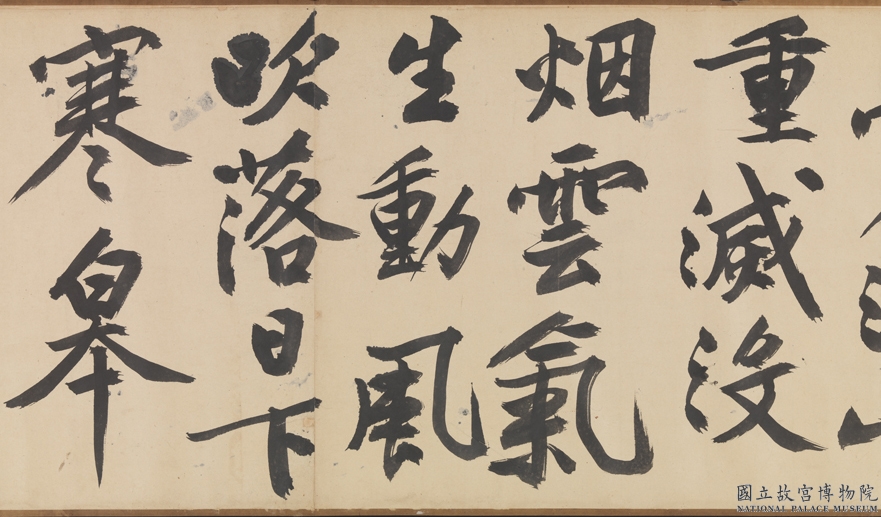 重滅没
烟雲氣
生動風
吹落日下
寒皋
國立故宮博物院
NATIONAL PALACE MUSEUM